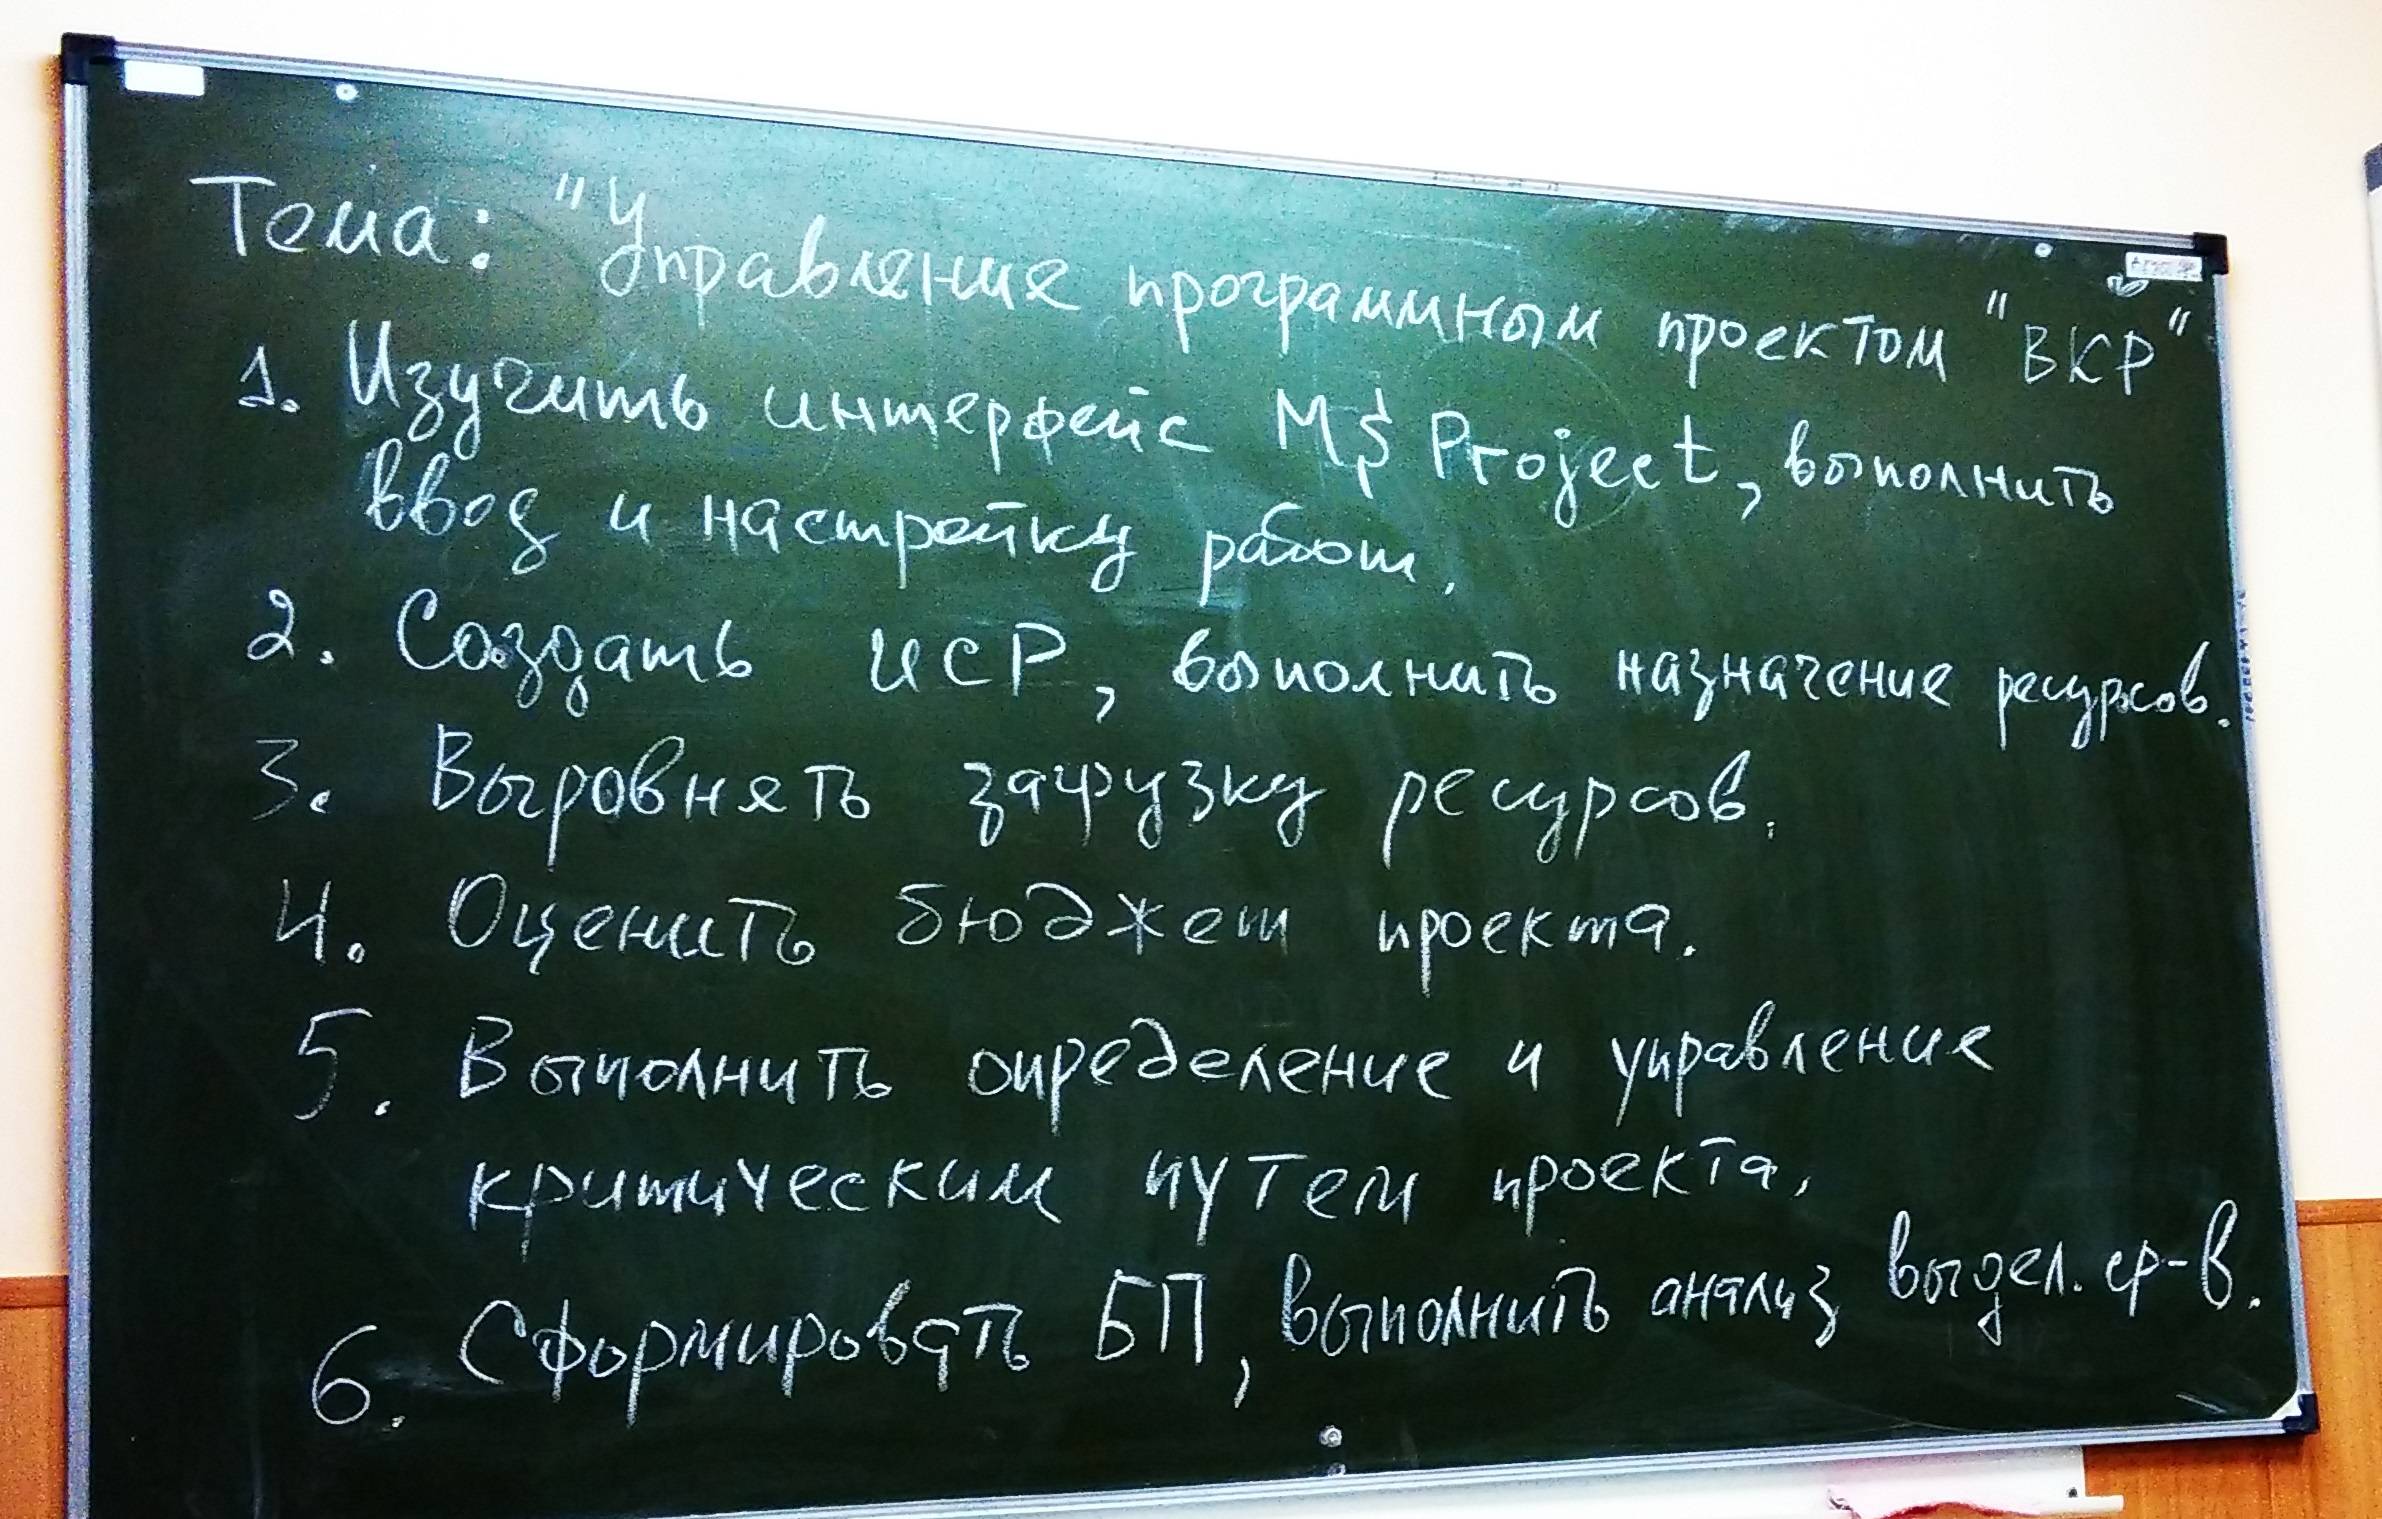 Тема: "Управление програмным проектом "ВКР"
1. Изучить интерфейс MS Project, выполнить
ввод и настройку работ.
2. Создать ИСР, выполнить назначение ресурсов.
3. Выровнять загрузку ресурсов.
4. Оценить бюджет проекта.
5. Выполнить определение и управление
критическим путем проекта.
6. Сформировать БП, выполнить анализ выдел. ср-в.